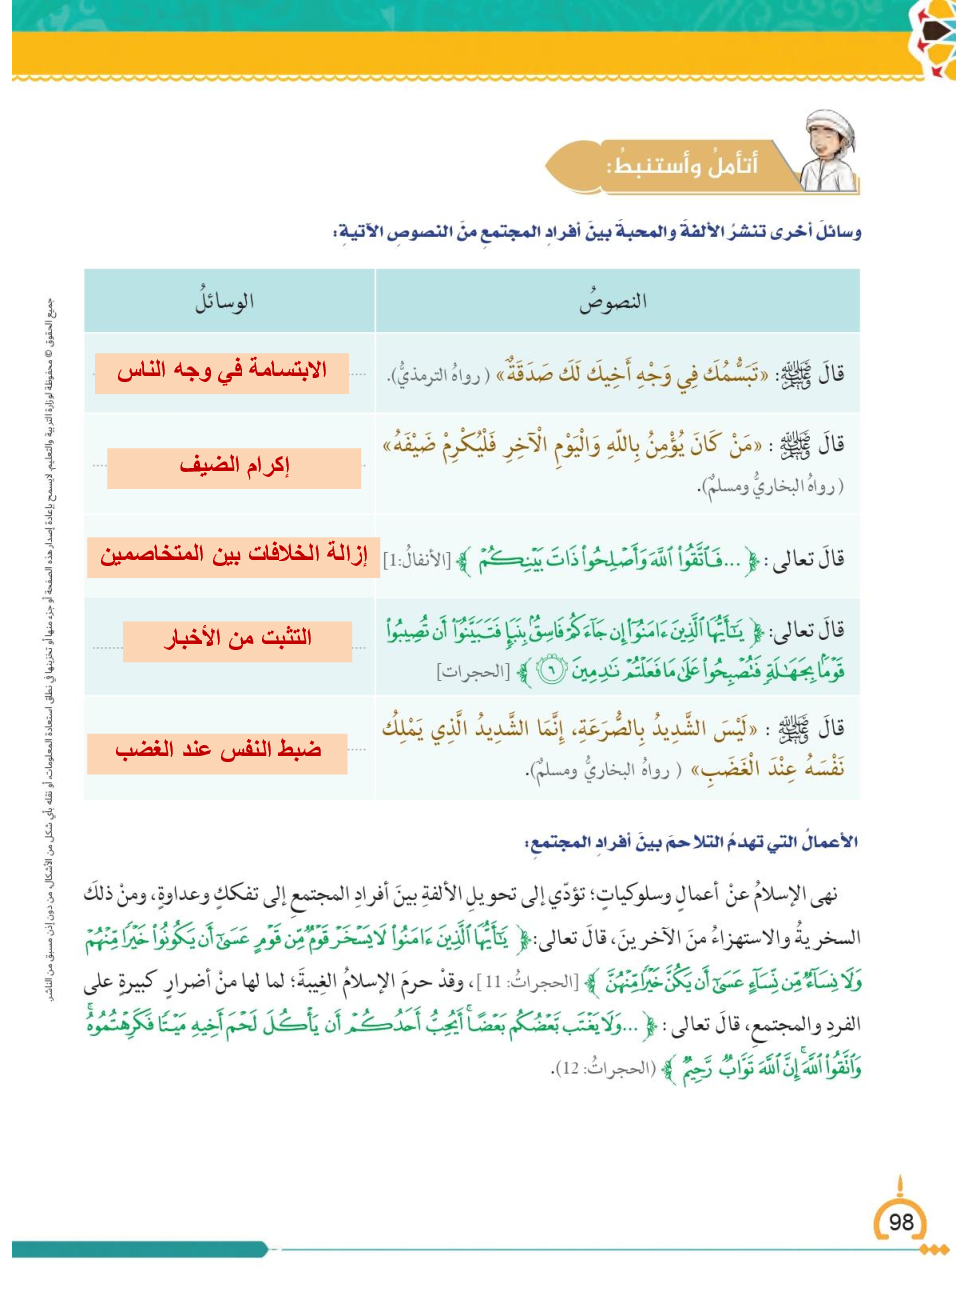 أتأملُ وأستنبطُ:
وسائلَ أخرى تنشرُ الألفةَ والمحبةَ بينَ أفرادِ المجتمعِ منَ النصوصِ الآتيةِ:
النصوصُ
الوسائلُ
قالَ ﷺ: «تَبَسُّمُكَ فِي وَجْهِ أَخِيكَ لَكَ صَدَقَةٌ» (رواهُ الترمذيُّ).
الابتسامة في وجه الناس
قالَ ﷺ : «مَنْ كَانَ يُؤْمِنُ بِاللَّهِ وَالْيَوْمِ الْآخِرِ فَلْيُكْرِمْ ضَيْفَهُ»
(رواهُ البخاريُّ ومسلمٌ).
إكرام الضيف
قالَ تعالى: ﴿ ...فَٱتَّقُواْ ٱللَّهَ وَأَصۡلِحُواْ ذَاتَ بَيۡنِكُمۡ ﴾ [الأنفالُ:1]
إزالة الخلافات بين المتخاصمين
قالَ تعالى: ﴿ يَٰٓأَيُّهَا ٱلَّذِينَ ءَامَنُوٓاْ إِن جَآءَكُمۡ فَاسِقُۢ بِنَبَإٖ فَتَبَيَّنُوٓاْ أَن تُصِيبُواْ
قَوۡمَۢا بِجَهَٰلَةٖ فَتُصۡبِحُواْ عَلَىٰ مَا فَعَلۡتُمۡ نَٰدِمِينَ ٦ ﴾ [الحجرات]
التثبت من الأخبار
قالَ ﷺ : «لَيْسَ الشَّدِيدُ بِالصُّرَعَةِ، إِنَّمَا الشَّدِيدُ الَّذِي يَمْلِكُ
نَفْسَهُ عِنْدَ الْغَضَبِ» (رواهُ البخاريُّ ومسلمٌ).
ضبط النفس عند الغضب
الأعمالُ التي تهدمُ التلاحمَ بينَ أفرادِ المجتمعِ:
نهى الإسلامُ عنْ أعمالٍ وسلوكياتٍ؛ تؤدّي إلى تحويلِ الألفةِ بينَ أفرادِ المجتمعِ إلى تفككٍ وعداوةٍ، ومنْ ذلكَ
السخريةُ والاستهزاءُ منَ الآخرينَ، قالَ تعالى: ﴿ يَٰٓأَيُّهَا ٱلَّذِينَ ءَامَنُواْ لَا يَسۡخَرۡ قَوۡمٞ مِّن قَوۡمٍ عَسَىٰٓ أَن يَكُونُواْ خَيۡرٗا مِّنۡهُمۡ
وَلَا نِسَآءٞ مِّن نِّسَآءٍ عَسَىٰٓ أَن يَكُنَّ خَيۡرٗا مِّنۡهُنَّ ﴾ [الحجراتُ: 11]، وقدْ حرمَ الإسلامُ الغِيبةَ؛ لما لها منْ أضرارٍ كبيرةٍ على
الفردِ والمجتمعِ، قالَ تعالى: ﴿ ...وَلَا يَغۡتَب بَّعۡضُكُم بَعۡضًاۚ أَيُحِبُّ أَحَدُكُمۡ أَن يَأۡكُلَ لَحۡمَ أَخِيهِ مَيۡتٗا فَكَرِهۡتُمُوهُۚ
وَٱتَّقُواْ ٱللَّهَۚ إِنَّ ٱللَّهَ تَوَّابٞ رَّحِيمٞ ﴾ (الحجراتُ: 12).
جميع الحقوق © محفوظة لوزارة التربية والتعليم. لا يسمح بإعادة إصدار هذه الصفحة أو جزء منها أو تخزينها في نطاق استعادة المعلومات، أو نقله بأي شكل من الأشكال، من دون إذن مسبق من الناشر.
98